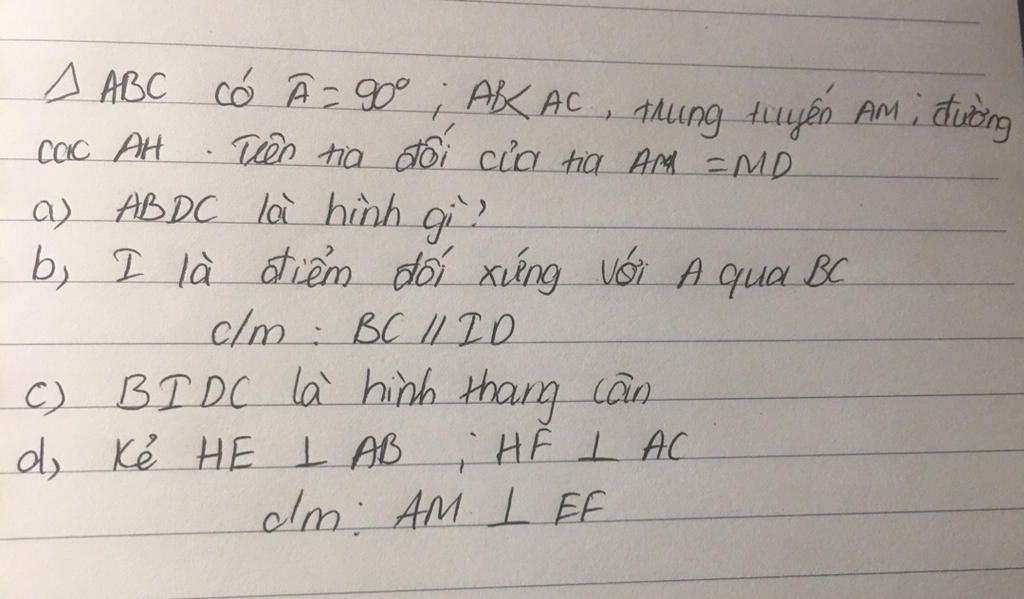 Δ ABC có Â = 90° ; AB< AC , trung tuyến AM ; đường
cac AH . Trên tia đối của tia AM = MD
a) ABDC là hình gì?
b, I là điểm đối xứng với A qua BC
c/m : BC // ID
c) BIDC là hình thang cân
d, Kẻ HE ⊥ AB ; HF ⊥ AC
c/m : AM ⊥ EF